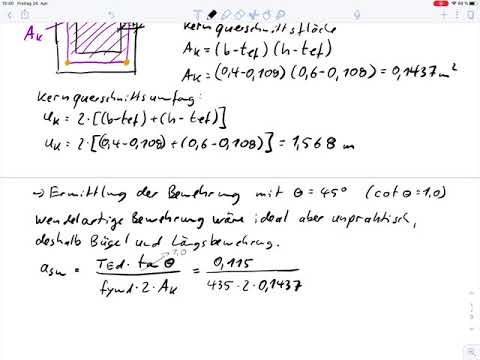 15:00 Freitag 24. Apr.
90 %
Kernquerschnittsfläche
A_K
A_K = (b-t_ef) (h-t_ef)
A_K = (0,4-0,108) (0,6-0,108) = 0,1437 m²
Kernquerschnittsumfang:
u_K = 2·[(b-t_ef)+(h-t_ef)]
u_K = 2·[(0,4-0,108)+(0,6-0,108)] = 1,568 m
→ Ermittlung der Bewehrung mit θ = 45° (cot θ = 1,0)
wendelartige Bewehrung wäre ideal aber unpraktisch,
deshalb Bügel und Längsbewehrung.
1,0
a_sw = T_Ed · tan θ / f_ywd · 2 · A_K = 0,115 / 435 · 2 · 0,1437